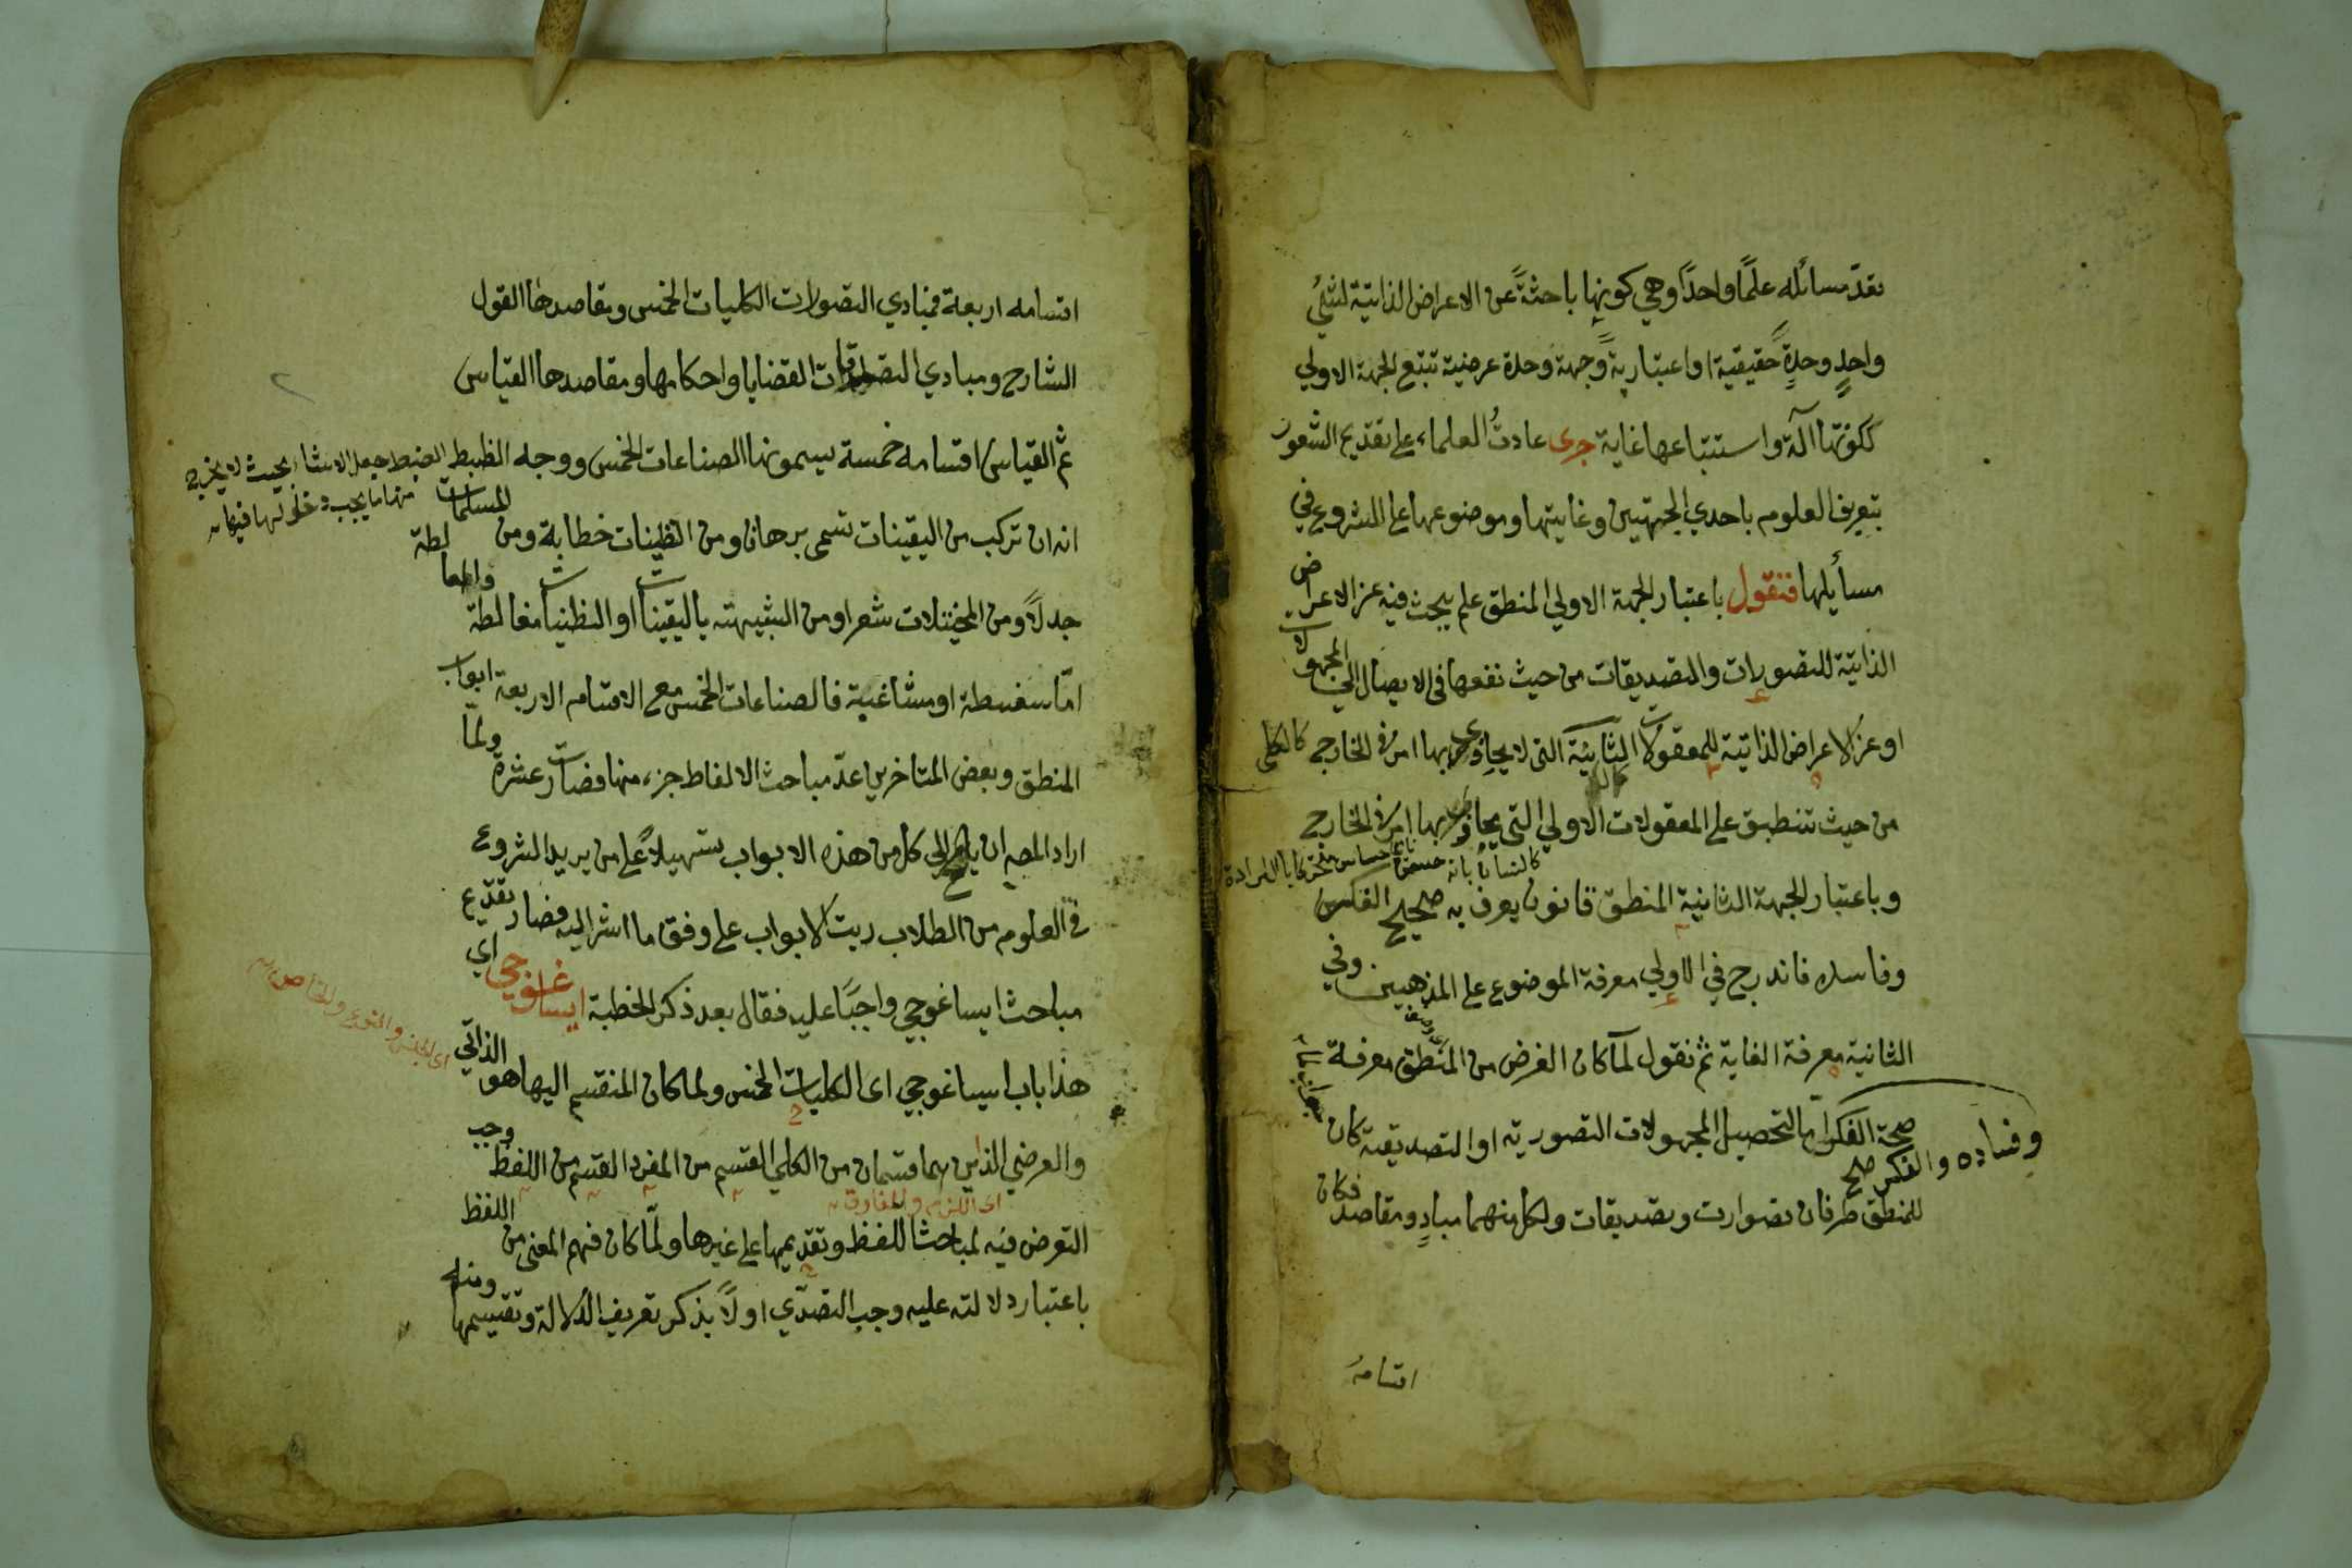 تعدّ مسائله علمًا واحدًا وهي كونها باحثةً عن الاعراض الذاتية لشيئ
واحدٍ وحدةً حقيقية او اعتباريةً وجهة وحدة عرضية تتبع الجهة الاولي
ككونها آلة واستتباعها غاية جرى عادتُ العلماء على تقديم الشعور
بتعريف العلوم باحدي الجهتين وغايتها وموضوعها على الشروع في
مسأيلها فنقول باعتبار الجهة الاولي المنطق علم يبحث فيه عن الاعراض
الذاتية للتصورات والتصديقات من حيث نفعها في الايصال الي المجهولات
او عن الاعراض الذاتية للمعقولات الثانية التى لا يحاذي بها امر في الخارج كالكلى
من حيث تنطبق على المعقولات الاولي التي يحاذي بها امر في الخارج
وباعتبار الجهة الثانية المنطق قانون يعرف به صحيح الفكر
وفاسده فاندرج في الاولي معرفة الموضوع على المذهبين وفي
الثانية معرفة الغاية ثم نقول لمّا كان الغرض من المنطق معرفة
صحة الفكر لتحصيل المجهولات التصورية او التصديقية كان
وفساده والفكر صح
للمنطق طرفان تصوارت وتصديقات ولكل منهما مبادٍ ومقاصد فكان
اقسامه
اقسامه اربعة فمبادي التصورات الكليات الخمس ومقاصدها القول
الشارح ومبادي التصديقات القضايا واحكامها ومقاصدها القياس
ثم القياس اقسامه خمسة يسمونها الصناعات الخمس ووجه الظبط
الضبط جعل الاشياء بحيث لا يخرج
منها ما يجب دخوله فيها
انه ان تركب من اليقينات تسمى برهان ومن الظنيات خطابة ومن المسلمات
جدلاً ومن المخيلات شعرا ومن الشبيهته باليقينات او الظنيات مغالطة والمغالطة
امّا سفسطة او مشاغبة فالصناعات الخمس مع الاقسام الاربعة ابواب
المنطق وبعض المتاخرين عدّ مباحث الالفاظ جزء منها فصارت عشرة ولمّا
اراد المصـ ان يا الى كل من هذه الابواب تسهيلاً على من يريد الشروع
في العلوم من الطلاب رتب الابواب على وفق ما اشر اليه فصار تقديم
مباحث ايساغوجي واجبًا عليه فقال بعد ذكر الخطبة ايساغوجي اي
هذا باب ايساغوجي اى الكليات الخمس ولما كان المنقسم اليها هو الذاتي
اى الجنس والنوع والخاص
والعرضي الذاين هما قسمان من الكلي القسم من المفرد القسم من اللفظ وجب
التعرض فيه لمباحث اللفظ وتقديمها على غيرها ولمّا كان فهم المعنى من اللفظ
باعتبار دلالته عليه وجب التصدّي اولاً بذكر تعريف الدلالة وتقسيمها ومنله